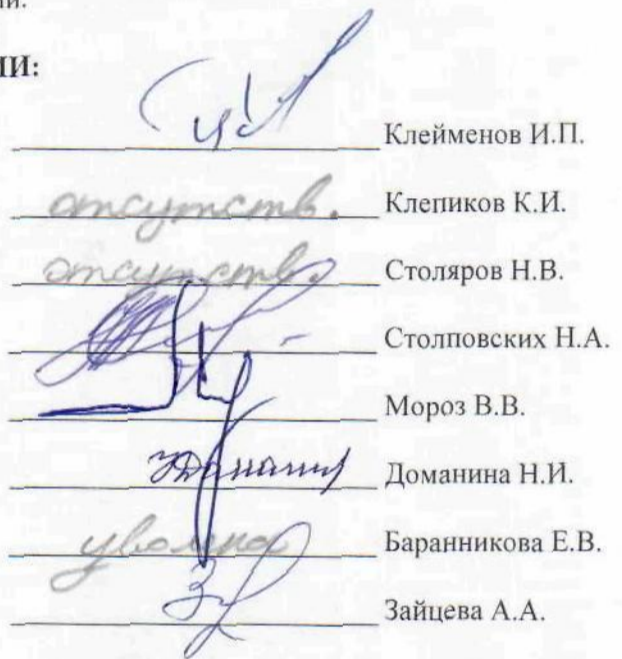 ии.
ИИ:
Клейменов И.П.
отсутств. Клепиков К.И.
отсутств. Столяров Н.В.
Столповских Н.А.
Мороз В.В.
Доманина Н.И.
уволена Баранникова Е.В.
Зайцева А.А.